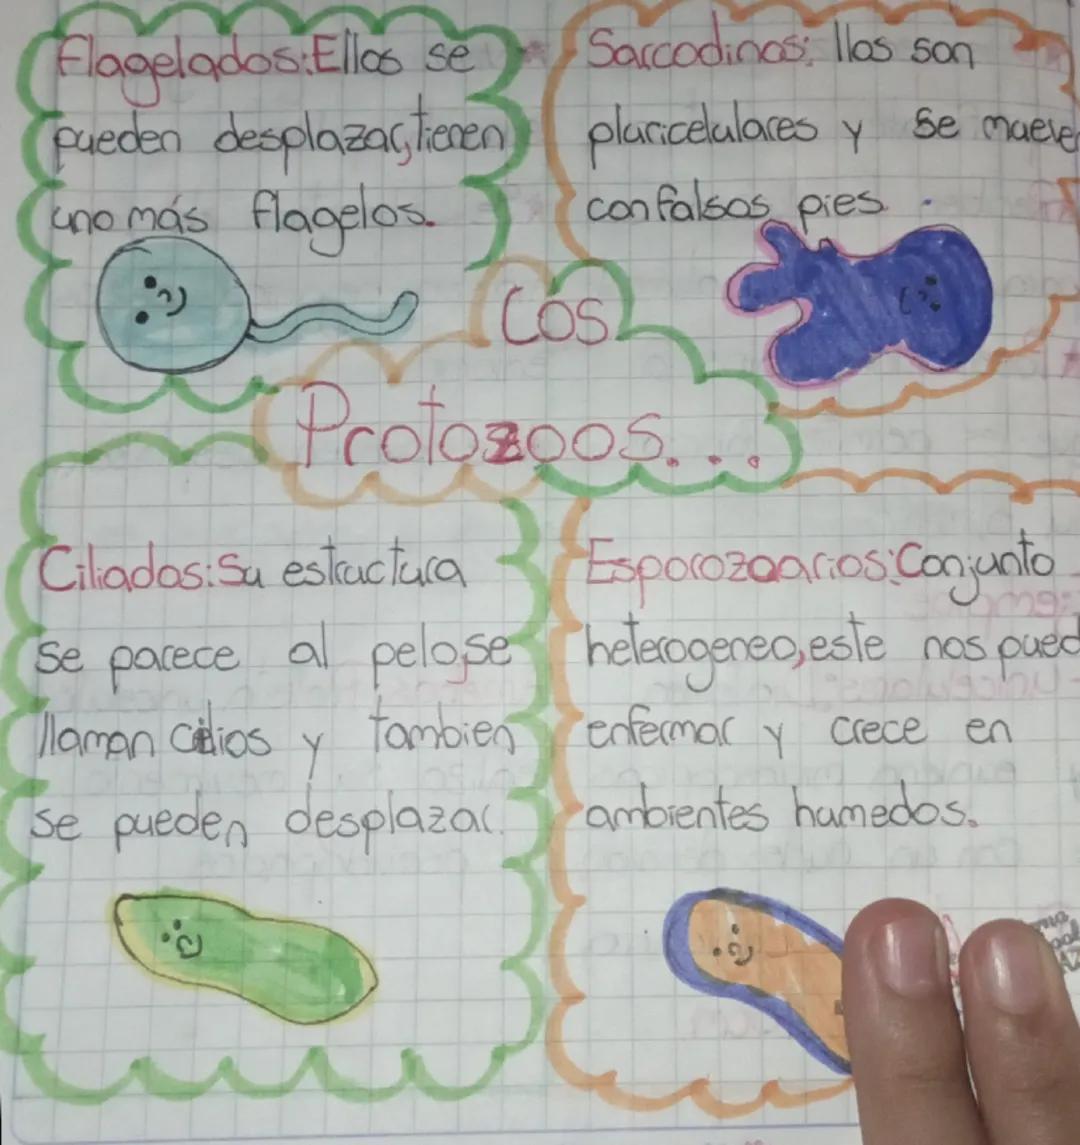 Flagelados:Ellos se
pueden desplazar,tienen
uno más flagelos.
Sarcodinos: llos son
pluricelulares y se mueve
con falsos pies.
Cos
Protozoos...
Ciliados:Su estructura
se parece al pelo,se
llaman cilios y tambien
se pueden desplazar.
Esporozoarios:Conjunto
heterogeneo,este nos pued
enfermar y crece en
ambientes humedos.